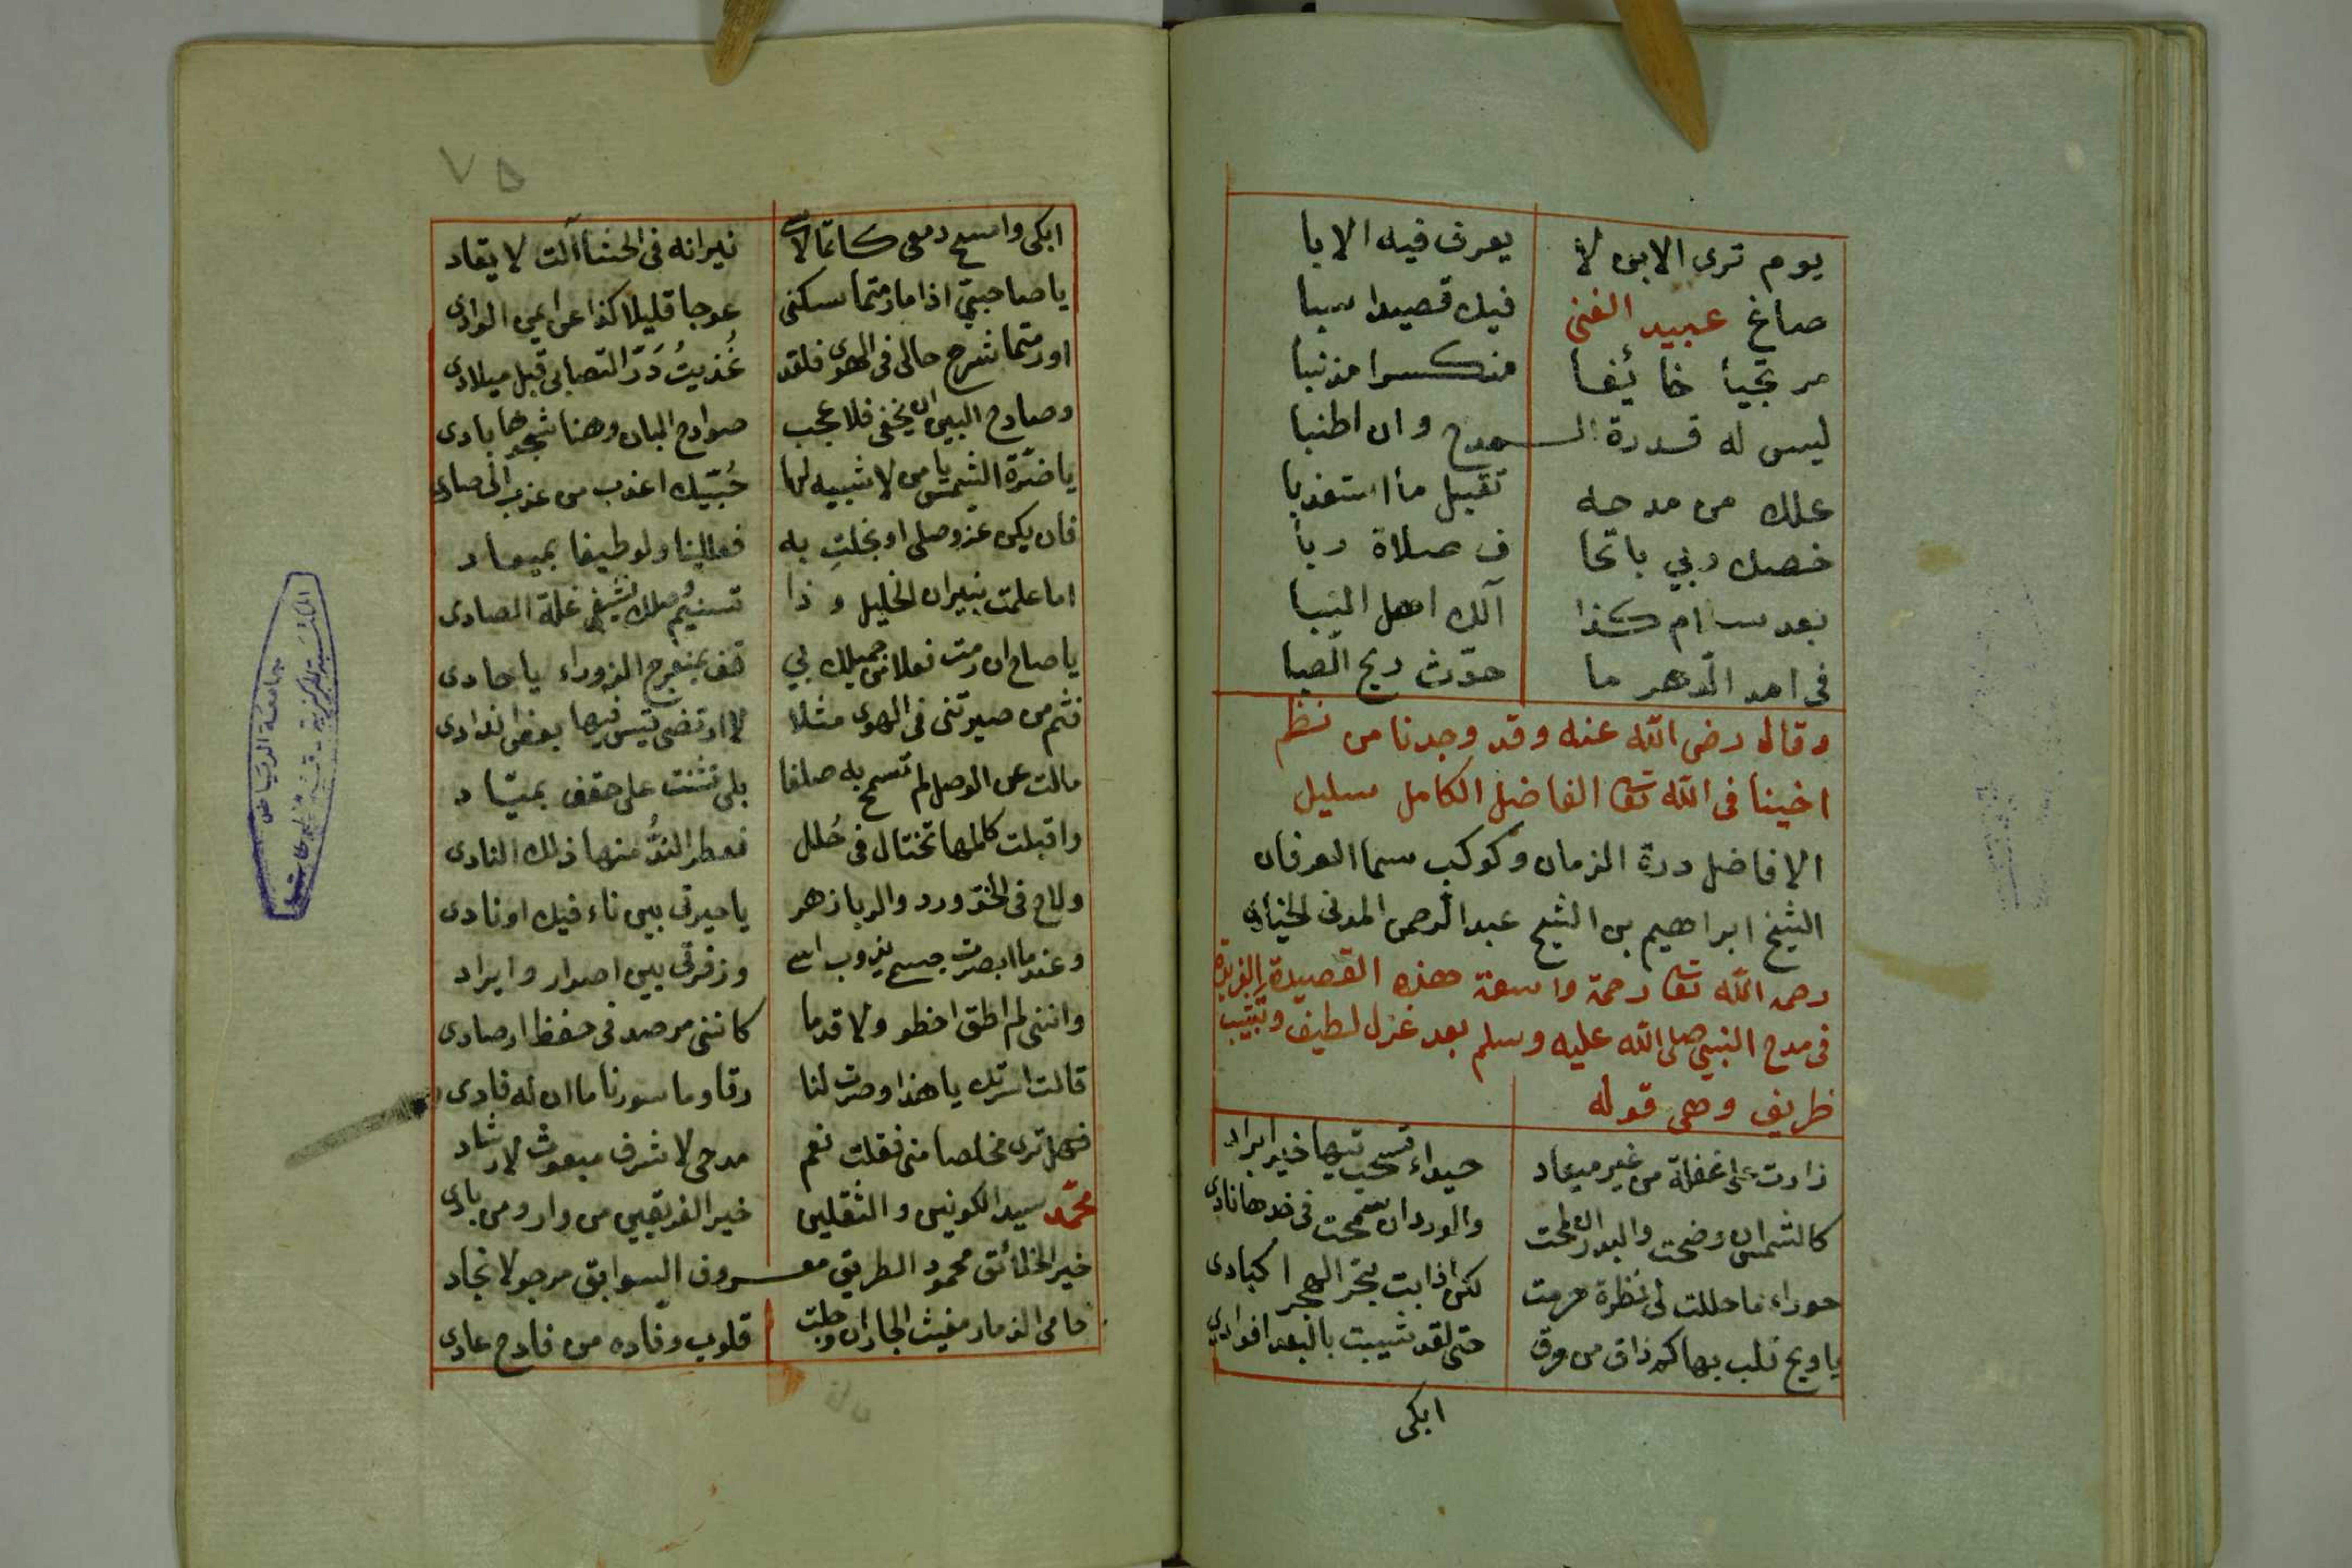 يوم ترى الابن لا يعرف فيه الابا
صاغ عبيد الغنى فيك قصيدا سبا
مرتجيأ خائفا منكسرا مذنبا
ليس له قدرة المدح وان اطنبا
علك من مدحه تقبل مأ استعذبا
خصك ربي باتحا ف صلاة ربا
بعد سلام كذا آلك اهل
في امد الدهر ما حدّث ريح الصبا
وقال رضى الله عنه وقد وجدنا من نظم
اخينا فى الله تعا الفاضل الكامل سليل
الافاضل درة الزمان وكوكب سما العرفان
الشيخ ابراهيم بن الشيخ عبد الرحمن المدنى الخيارى
رحمه الله تعا رحمة واسعة هذه القصيدة الفريدة
فى مدح النبى صلى الله عليه وسلم بعد غزل لطيف
ظريف وهى قوله
زارت على غفلة من غير ميعاد حيداء تسحب تيها خير ابراد
كالشمس ان وضحت والبدر ان لمحت والورد ان سمحت فى خدها نادى
حوراء ما حللت لى نظرة حرمت لكن اذابت بحر الهجر اكبادى
يا ويح قلب بها كم ذاق من حرق حتى لقد شيبت بالبعد افوادى
ابكى
٧٥
ابكى وامسح دمعى كاتما لاسى نيرانه فى الحشا آلت لا يقاد
يا صاحبيّ اذا ما رمتما سكنى عوجا قليلا كذا عن ايمن الوادى
او رمتما شرح حالى فى الهوى فلقد غُذيتُ دَرّ التصابى قبل ميلادى
وصادح البين ان يخفى فلا عجب صوادح البان وهنا شجوها بادى
يا ضرّة الشمس يا من لا شبيه لها حُبيّك اعذب من عذب الى صادى
فان يكن عز وصلى او بخلتِ به فعللينا ولو طيفا بميعاد
اما علمت بنيران الخليل وذا تسنيم وصلك تشفى غلة الصادى
يا صاح ان رمت فعلا من جميلك لي قف بمنعرج الزوراء يا حادى
فثم من صيرتنى فى الهوى مثلا لا ارتضى قيس فيها بعض اندادى
مالت عن الوصل لم تسمح به صلفا بلى تثنت على حقف بميّاد
واقبلت كالمها تختال فى حُلل فعطر الندُّ منها ذلك النادى
ولاح فى الخدّ ورد والربا زهر يا حيرتى بين ناء فيك او نادى
وعندما ابصرت جسمى يذوب اسى وزفرتى بين اصدار وايراد
واننى لم اطق اخطو ولا قدما كاننى مرصد فى حفظ ارصادى
قالت اسرتك يا هذا وصرت لنا رقا وما سورنا ما ان له فادى
فهل ترى مخلصا منى فقلت نعم مدحى لا شرف مبعوث لارشاد
محمّد سيد الكونين والثقلين خير الفريقين من وار ومن بادى
خير الخلائق محمود الطريق معـروف السوابق مرجو لانجاد
حامى الذمار مغيث الجار ان وجلت قلوب وفاده من فادح عادى
جامعة الرياض